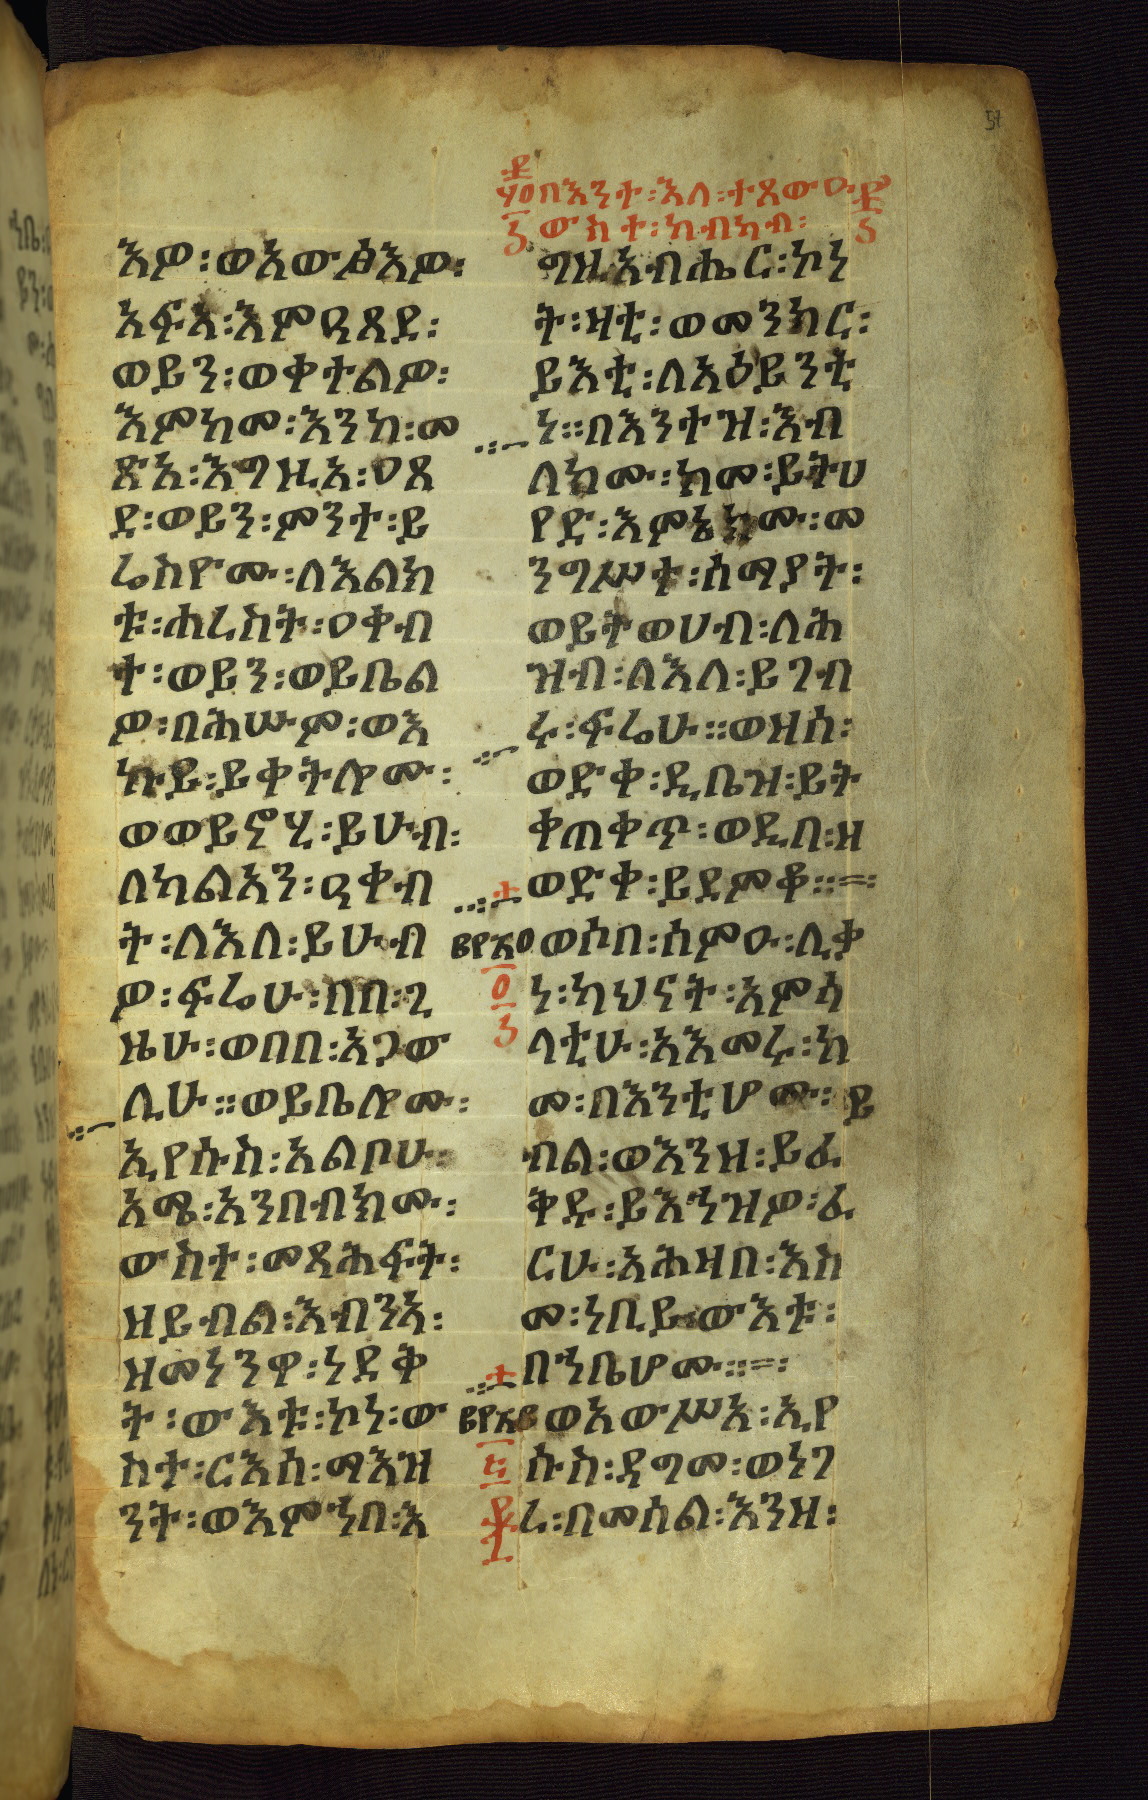 በእንተ፡እለ፡ተጸውዑ፡
ውስተ፡ከብካብ፡
እዎ፡ወአውፅእዎ፡
አፍአ፡እምዓጸደ፡
ወይን፡ወቀተልዎ፡
እምከመ፡እንከ፡መ
ጽአ፡እግዚአ፡ዐጸ
ደ፡ወይን፡ምንተ፡ይ
ሬስዮሙ፡ለእልክ
ቱ፡ሐረስት፡ዐቀብ
ተ፡ወይን፡ወይቤል
ዎ፡በሕሡም፡ወእ
ኩይ፡ይቀትሎሙ፡
ወወይኖሂ፡ይሁብ፡
ለካልአን፡ዓቀብ
ት፡ለእለ፡ይሁብ
ዎ፡ፍሬሁ፡በበ፡ጊ
ዜሁ፡ወበበ፡አጋው
ሊሁ፡፡ወይቤሎሙ፡
ኢየሱስ፡አልቦሁ፡
አሜ፡አንበብክሙ፡
ውስተ፡መጻሕፍት፡
ዘይብል፡እብንኣ፡
ዘመነንዋ፡ነደቅ
ት፡ውእቱ፡ኮነ፡ው
ስተ፡ርእሰ፡ማእዝ
ንት፡ወእምኀበ፡እ
ግዚአብሔር፡ኮነ
ት፡ዛቲ፡ወመንክር፡
ይእቲ፡ለአዕይንቲ
ነ፡፡በእንተዝ፡እብ
ለክሙ፡ከመ፡ይትሀ
የድ፡እምኔክሙ፡መ
ንግሥተ፡ሰማያት፡
ወይትወሀብ፡ለሕ
ዝብ፡ለእለ፡ይገብ
ሩ፡ፍሬሁ፡፡ወዘሰ፡
ወድቀ፡ዲቤዝ፡ይት
ቀጠቀጥ፡ወዲበ፡ዘ
ወድቀ፡ይደምቆ፡፡=፡
ወሶበ፡ሰምዑ፡ሊቃ
ነ፡ካህናት፡አምሳ
ላቲሁ፡አእመሩ፡ከ
መ፡በእንቲሆሙ፡ይ
ብል፡ወእንዘ፡ይፈ
ቅዱ፡ይእኀዝዎ፡ፈ
ርሁ፡አሕዛበ፡እስ
መ፡ነቢይ፡ውእቱ፡
በኀቤሆሙ፡፡=፡
ወአውሥአ፡ኢየ
ሱስ፡ዳግመ፡ወነገ
ረ፡በመሰል፡እንዘ፡